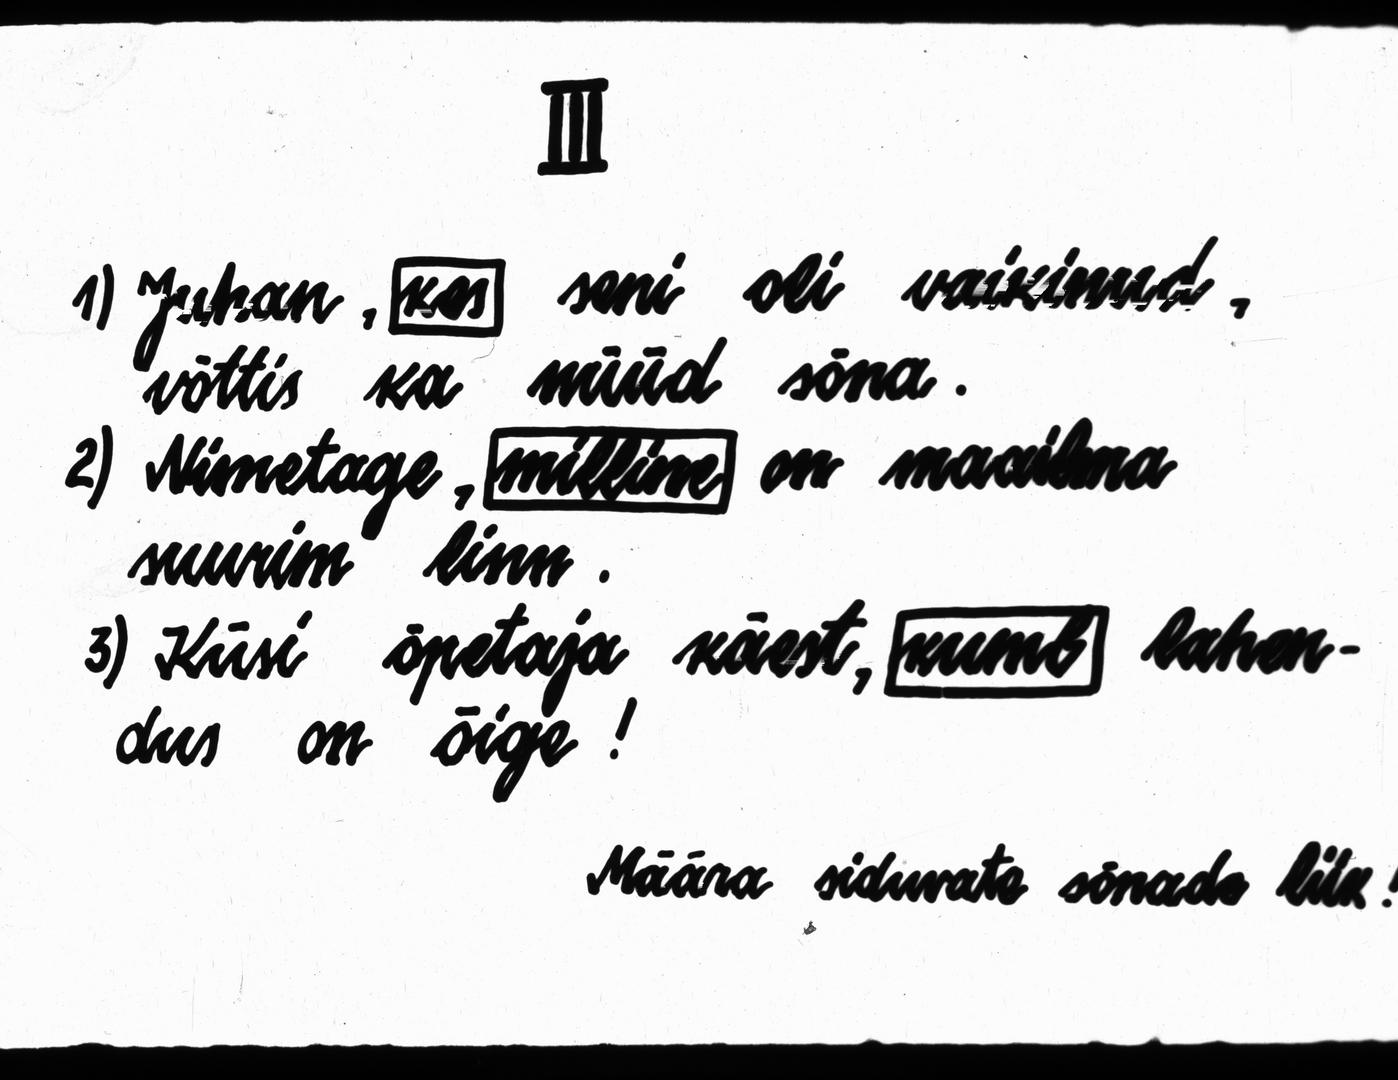 III
1) Juhan, kes seni oli vaikinud,
võttis ka nüüd sõna.
2) Nimetage, milline on maailma
suurim linn.
3) Küsi õpetaja käest, kumb lahen-
dus on õige!
Määra siduvate sõnade liik!